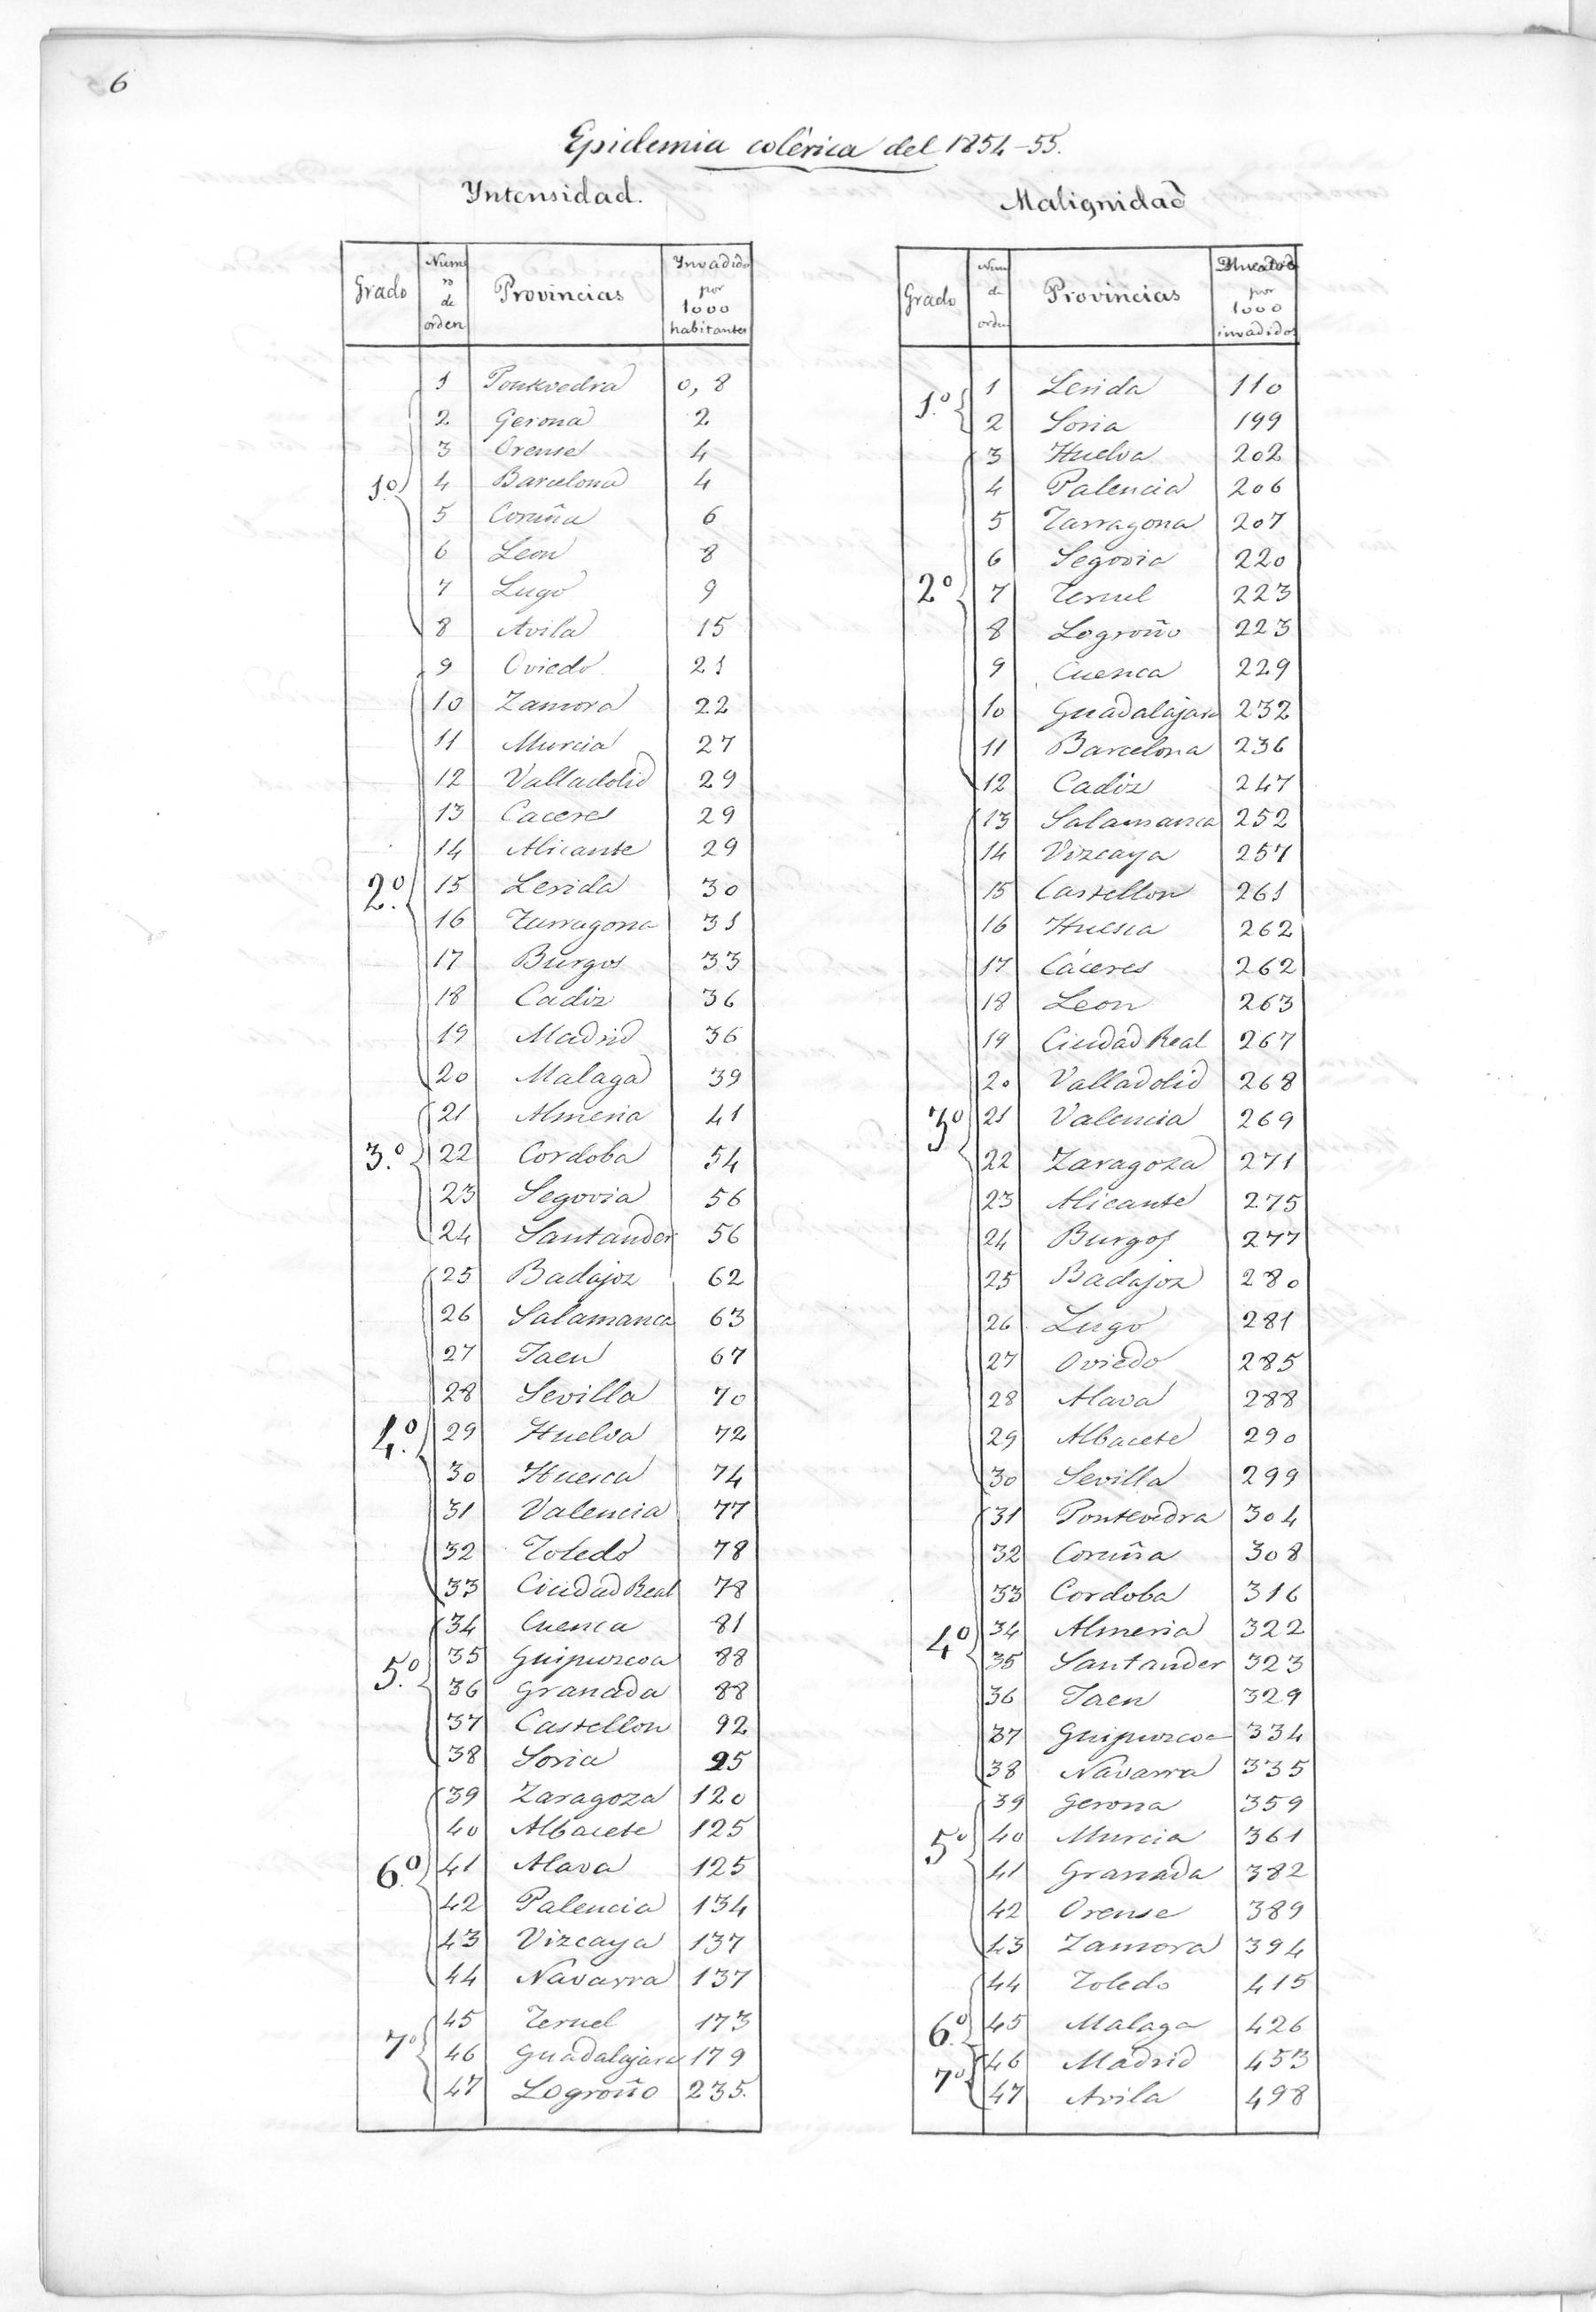 6
Epidemia colérica del 1854-55.
Yntensidad.
Grado Numero de orden Provincias Ynvadidos por 1000 habitantes
1 Pontevedra 0,8
2 Gerona 2
3 Orense 4
1.º 4 Barcelona 4
5 Coruña 6
6 Leon 8
7 Lugo 9
8 Avila 15
9 Oviedo 21
10 Zamora 22
11 Murcia 27
12 Valladolid 29
13 Caceres 29
14 Alicante 29
2.º 15 Lerida 30
16 Tarragona 31
17 Burgos 33
18 Cadiz 36
19 Madrid 36
20 Malaga 39
21 Almeria 41
3.º 22 Cordoba 54
23 Segovia 56
24 Santander 56
25 Badajoz 62
26 Salamanca 63
27 Jaen 67
28 Sevilla 70
4.º 29 Huelva 72
30 Huesca 74
31 Valencia 77
32 Toledo 78
33 Ciudad Real 78
34 Cuenca 81
5.º 35 Guipuzcoa 88
36 Granada 88
37 Castellon 92
38 Soria 95
39 Zaragoza 120
40 Albacete 125
6.º 41 Alava 125
42 Palencia 134
43 Vizcaya 137
44 Navarra 137
45 Teruel 173
7º 46 Guadalajara 179
47 Logroño 235.
Malignidad
Grado Num de orden Provincias Muertos por 1000 invadidos
1.º 1 Lerida 110
2 Soria 199
3 Huelva 202
4 Palencia 206
5 Tarragona 207
6 Segovia 220
2º 7 Teruel 223
8 Logroño 223
9 Cuenca 229
10 Guadalajara 232
11 Barcelona 236
12 Cadiz 247
13 Salamanca 252
14 Vizcaya 257
15 Castellon 261
16 Huesca 262
17 Cáceres 262
18 Leon 263
19 Ciudad Real 267
20 Valladolid 268
3º 21 Valencia 269
22 Zaragoza 271
23 Alicante 275
24 Burgos 277
25 Badajoz 280
26 Lugo 281
27 Oviedo 285
28 Alava 288
29 Albacete 290
30 Sevilla 299
31 Pontevedra 304
32 Coruña 308
33 Cordoba 316
4º 34 Almeria 322
35 Santander 323
36 Jaen 329
37 Guipuzcoa 334
38 Navarra 335
39 Gerona 359
5º 40 Murcia 361
41 Granada 382
42 Orense 389
43 Zamora 394
44 Toledo 415
6.º 45 Malaga 426
7º 46 Madrid 453
47 Avila 498